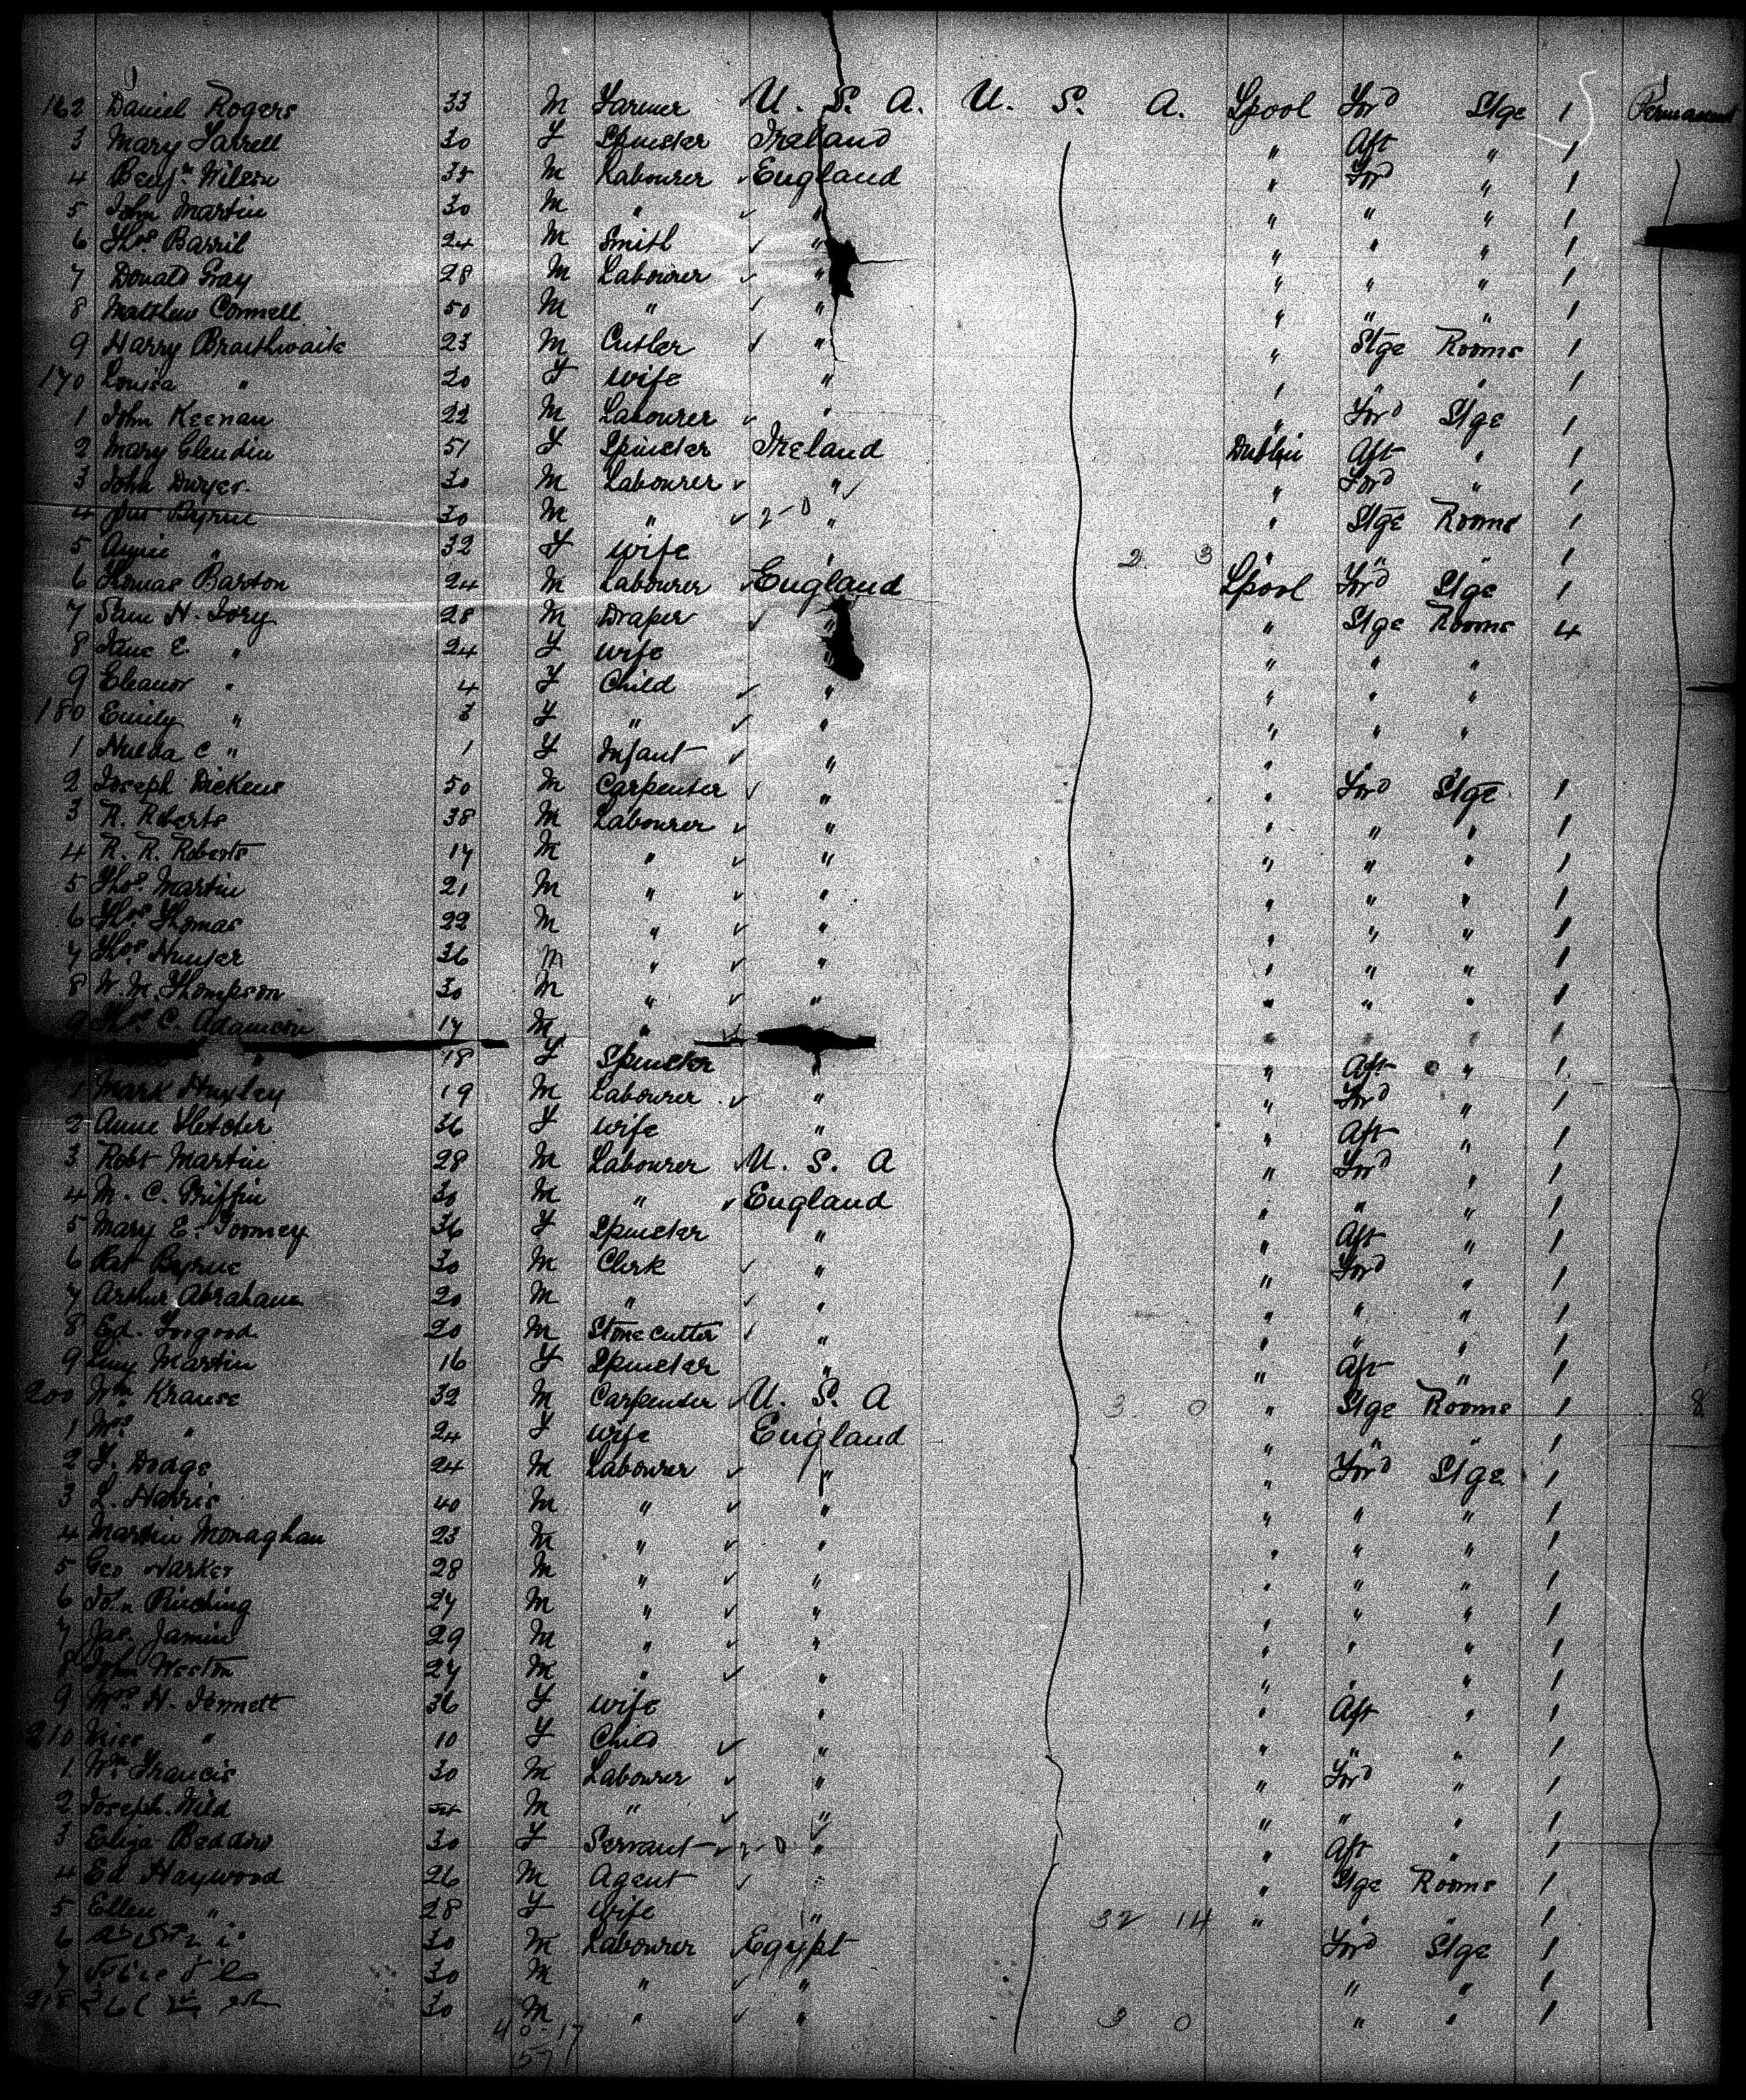 162 Daniel Rogers 33 M Farmer U. S. A. U. S. A. Lpool For'd Stge 1 Permanent
3 Mary Farrell 30 F Spinster Ireland " Aft " 1
4 Benjn Wilson 35 M Labourer England " For'd " 1
5 John Martin 30 M " " " " " 1
6 Thos Barril 24 M Smith " " " " 1
7 Donald Gray 28 M Labourer " " " " 1
8 Matthew Connell 50 M " " " " " 1
9 Harry Braithwaite 23 M Cutler " " Stge Rooms 1
170 Louisa " 20 F Wife " " " " 1
1 John Keenan 22 M Labourer " " For'd Stge 1
2 Mary Glendin 51 F Spinster Ireland Dublin Aft " 1
3 John Dwyer 30 M Labourer " " For'd " 1
4 Byrne 30 M " " " Stge Rooms 1
5 Annie " 32 F Wife " 2 3 " " " 1
6 Thomas Barton 24 M Labourer England Lpool For'd Stge 1
7 Sam H. Ivory 28 M Draper " " Stge Rooms 4
8 Jane E. " 24 F Wife " " " "
9 Eleanor " 4 F Child " " " "
180 Emily " 3 F " " " " "
1 Hulda C " 1 F Infant " " " "
2 Joseph Dickens 50 M Carpenter " " For'd Stge 1
3 R. Roberts 38 M Labourer " " " " 1
4 R. R. Roberts 17 M " " " " " 1
5 Thos. Martin 21 M " " " " " 1
6 Thos Thomas 22 M " " " " " 1
7 Thos. Hunter 36 M " " " " " 1
8 W. M. Thompson 30 M " " " " " 1
9 C. Adamson 17 M " " " " 1
" 18 F Spinster " " Aft " 1
1 Mark Huxley 19 M Labourer " " For'd " 1
2 Anne Fletcher 36 F Wife " " Aft " 1
3 Robt Martin 28 M Labourer U. S. A " For'd " 1
4 M. C. Griffin 30 M " England " " " 1
5 Mary E. Toomey 36 F Spinster " " Aft " 1
6 Pat Byrne 30 M Clerk " " For'd " 1
7 Arthur Abrahams 20 M " " " " " 1
8 Ed. Toogood 20 M Stone cutter " " " " 1
9 Martin 16 F Spinster " " Aft " 1
200 Wm Krause 32 M Carpenter U. S. A 3 0 " Stge Rooms 1 8
1 Mrs " 24 F Wife England " " " 1
2 F. Dodge 24 M Labourer " " For'd Stge 1
3 L. Harris 40 M " " " " " 1
4 Martin Monaghan 23 M " " " " " 1
5 Geo Harker 28 M " " " " " 1
6 Jon Pinching 27 M " " " " " 1
7 Jas. Jamin 29 M " " " " " 1
8 John Weston 27 M " " " " " 1
9 Mrs. H. Jennett 36 F Wife " " Aft " 1
210 Miss " 10 F Child " " " " 1
1 Wm Francis 30 M Labourer " " For'd " 1
2 Joseph Wild M " " " " " 1
3 Eliza Beddow 30 F Servant " " Aft " 1
4 Ed Haywood 26 M Agent " " Stge Rooms 1
5 Ellen " 28 F Wife " 32 14 " " " 1
6 30 M Labourer Egypt For'd Stge 1
7 30 M " " " " 1
218 30 M " " 3 0 " " 1
40 17
57